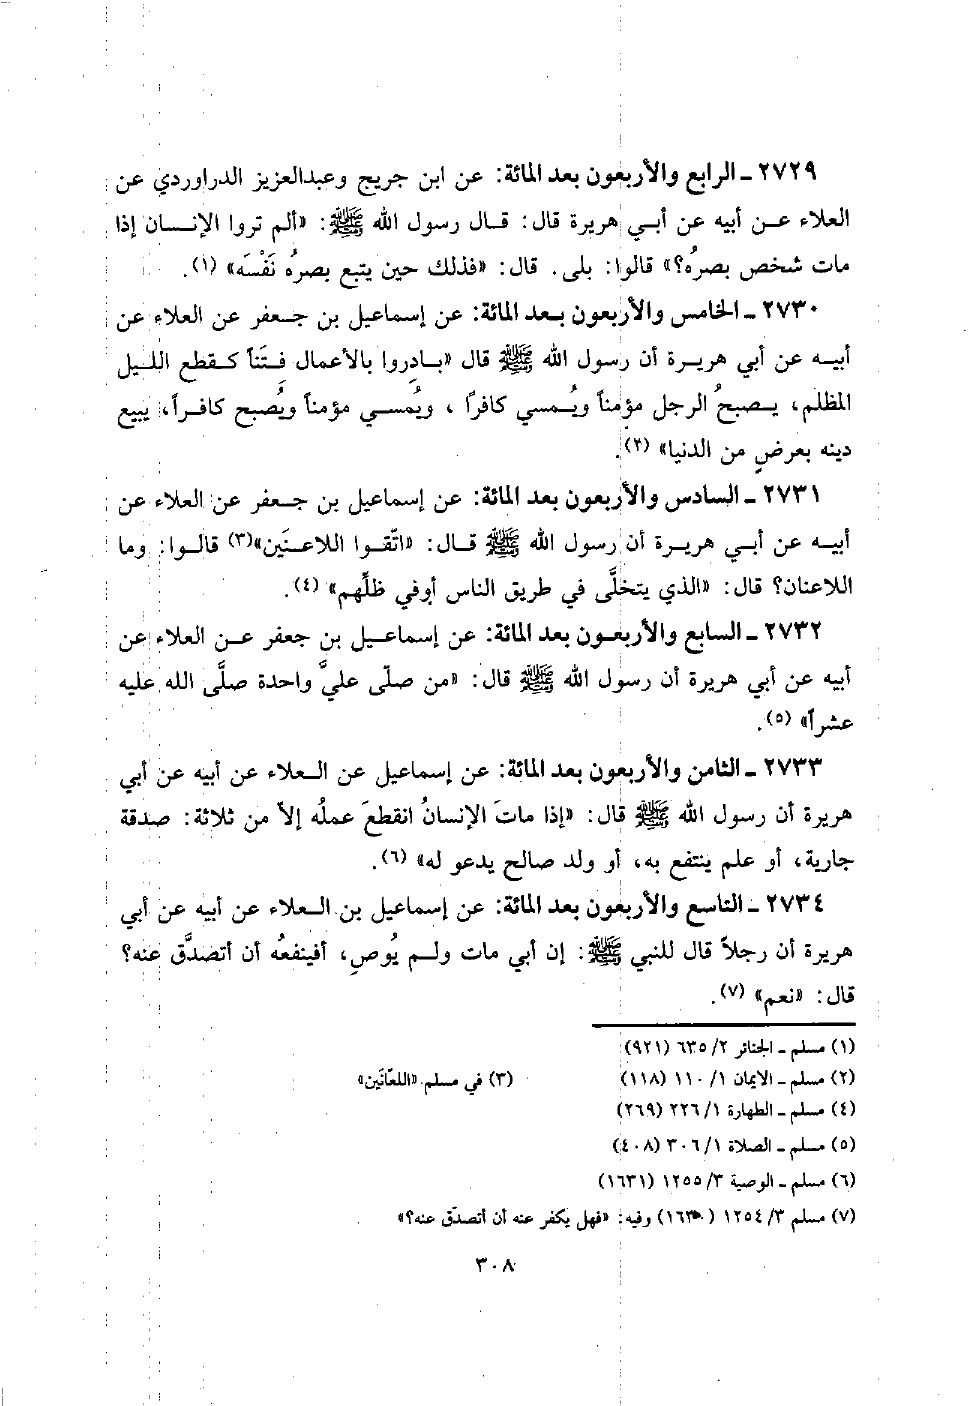 ٢٧٢٩ ـ الرابع والأربعون بعد المائة: عن ابن جريج وعبدالعزيز الدراوردي عن
العلاء عن أبيه عن أبي هريرة قال: قال رسول الله ﷺ: «ألم تروا الإنسان إذا
مات شخص بصرُه؟» قالوا: بلى. قال: «فذلك حين يتبع بصرُه نَفْسَه» (١).
٢٧٣٠ ـ الخامس والأربعون بعد المائة: عن إسماعيل بن جعفر عن العلاء عن
أبيه عن أبي هريرة أن رسول الله ﷺ قال «بادروا بالأعمال فتَناً كقطع الليل
المظلم، يصبحُ الرجل مؤمناً ويُمسي كافراً ، ويُمسي مؤمناً ويُصبح كافراً، يبيع
دينه بعرضٍ من الدنيا» (٢).
٢٧٣١ ـ السادس والأربعون بعد المائة: عن إسماعيل بن جعفر عن العلاء عن
أبيه عن أبي هريرة أن رسول الله ﷺ قال: «اتّقوا اللاعنَين»(٣) قالوا: وما
اللاعنان؟ قال: «الذي يتخلَّى في طريق الناس أوفي ظلِّهم» (٤).
٢٧٣٢ ـ السابع والأربعون بعد المائة: عن إسماعيل بن جعفر عن العلاء عن
أبيه عن أبي هريرة أن رسول الله ﷺ قال: «من صلّى عليَّ واحدة صلَّى الله عليه
عشراً» (٥).
٢٧٣٣ ـ الثامن والأربعون بعد المائة: عن إسماعيل عن العلاء عن أبيه عن أبي
هريرة أن رسول الله ﷺ قال: «إذا ماتَ الإنسانُ انقطعَ عملُه إلاّ من ثلاثة: صدقة
جارية، أو علم ينتفع به، أو ولد صالح يدعو له» (٦).
٢٧٣٤ ـ التاسع والأربعون بعد المائة: عن إسماعيل بن العلاء عن أبيه عن أبي
هريرة أن رجلاً قال للنبي ﷺ: إن أبي مات ولم يُوصِ، أفينفعُه أن أتصدَّق عنه؟
قال: «نعم» (٧).
(١) مسلم ـ الجنائز ٢/ ٦٣٥ (٩٢١)
(٢) مسلم ـ الايمان ١/ ١١٠ (١١٨) (٣) في مسلم «اللعّانَين»
(٤) مسلم ـ الطهارة ١/ ٢٢٦ (٢٦٩)
(٥) مسلم ـ الصلاة ١/ ٣٠٦ (٤٠٨)
(٦) مسلم ـ الوصية ٣/ ١٢٥٥ (١٦٣١)
(٧) مسلم ٣/ ١٢٥٤ (١٦٣٠) وفيه: «فهل يكفر عنه أن أتصدّق عنه؟»
٣٠٨